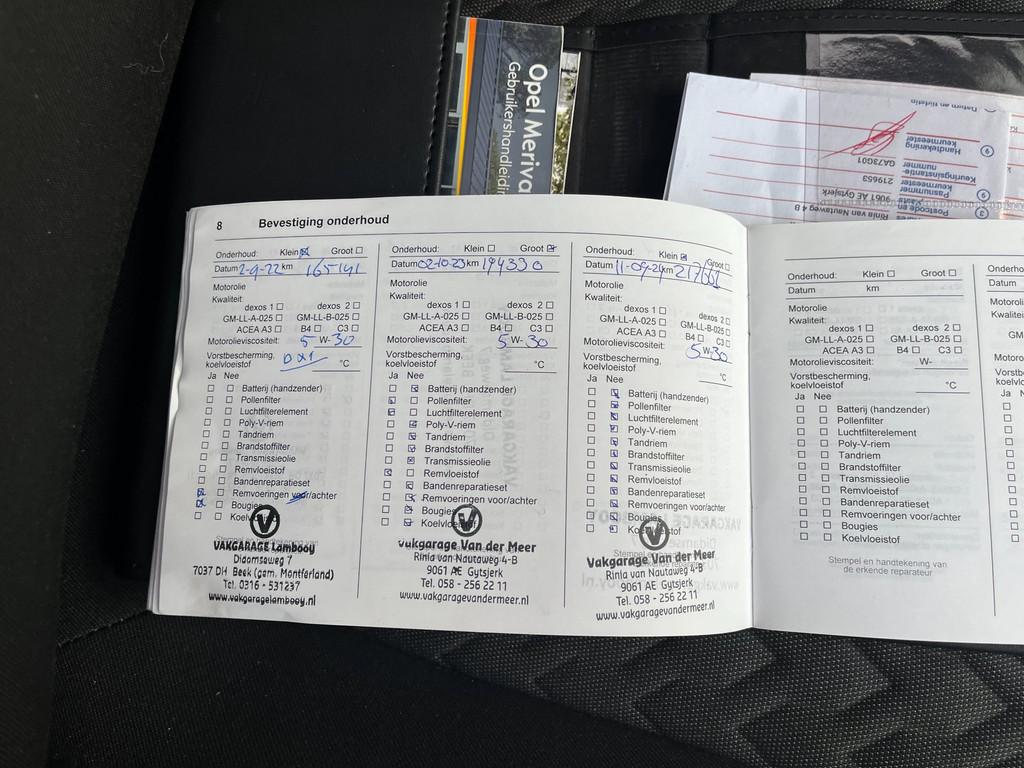 Opel Meriva
Gebruikershandleidin
Datum en tijdstip
Handtekening
keurmeester
Keuringsinstantie-
nummer
GA73G01
Pasnummer
keurmeester
219653
Postcode en
9061 AE Gytsjerk
Rinia van Nautaweg 4 B
8 Bevestiging onderhoud
Onderhoud: Klein Groot
Datum 2-9-22 km 165141
Motorolie
Kwaliteit:
dexos 1 dexos 2
GM-LL-A-025 GM-LL-B-025
ACEA A3 B4 C3
Motorolieviscositeit: 5 W- 30
Vorstbescherming,
koelvloeistof °C
Ja Nee
Batterij (handzender)
Pollenfilter
Luchtfilterelement
Poly-V-riem
Tandriem
Brandstoffilter
Transmissieolie
Remvloeistof
Bandenreparatieset
Remvoeringen voor/achter
Bougies
VAKGARAGE Lambooy
Didamseweg 7
7037 DH Beek (gem. Montferland)
Tel. 0316 - 531237
www.vakgaragelambooy.nl
Onderhoud: Klein Groot
Datum 02-10-23 km 194330
Motorolie
Kwaliteit:
dexos 1 dexos 2
GM-LL-A-025 GM-LL-B-025
ACEA A3 B4 C3
Motorolieviscositeit: 5 W- 30
Vorstbescherming,
koelvloeistof °C
Ja Nee
Batterij (handzender)
Pollenfilter
Luchtfilterelement
Poly-V-riem
Tandriem
Brandstoffilter
Transmissieolie
Remvloeistof
Bandenreparatieset
Remvoeringen voor/achter
Bougies
Koelvloeistof
Vakgarage Van der Meer
Rinia van Nautaweg 4-B
9061 AE Gytsjerk
Tel. 058 - 256 22 11
www.vakgaragevandermeer.nl
Onderhoud: Klein Groot
Datum 11-09-24 km
Motorolie
Kwaliteit:
dexos 1 dexos 2
GM-LL-A-025 GM-LL-B-025
ACEA A3 B4 C3
Motorolieviscositeit: 5 W- 30
Vorstbescherming,
koelvloeistof °C
Ja Nee
Batterij (handzender)
Pollenfilter
Luchtfilterelement
Poly-V-riem
Tandriem
Brandstoffilter
Transmissieolie
Remvloeistof
Bandenreparatieset
Remvoeringen voor/achter
Bougies
Koelvloeistof
Vakgarage Van der Meer
Rinia van Nautaweg 4-B
9061 AE Gytsjerk
Tel. 058 - 256 22 11
www.vakgaragevandermeer.nl
Onderhoud: Klein Groot
Datum km
Motorolie
Kwaliteit:
dexos 1 dexos 2
GM-LL-A-025 GM-LL-B-025
ACEA A3 B4 C3
Motorolieviscositeit: W-
Vorstbescherming,
koelvloeistof °C
Ja Nee
Batterij (handzender)
Pollenfilter
Luchtfilterelement
Poly-V-riem
Tandriem
Brandstoffilter
Transmissieolie
Remvloeistof
Bandenreparatieset
Remvoeringen voor/achter
Bougies
Koelvloeistof
Stempel en handtekening van
de erkende reparateur
Onderho
Datum
Motorolie
Kwaliteit
Ja